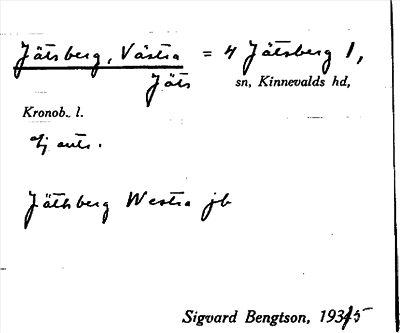 Jätsberg, Västra = 4 Jätsberg 1,
Jäts sn, Kinnevalds hd,
Kronob. l.
Ej ants.
Jäthsberg Westra jb
Sigvard Bengtson, 1935